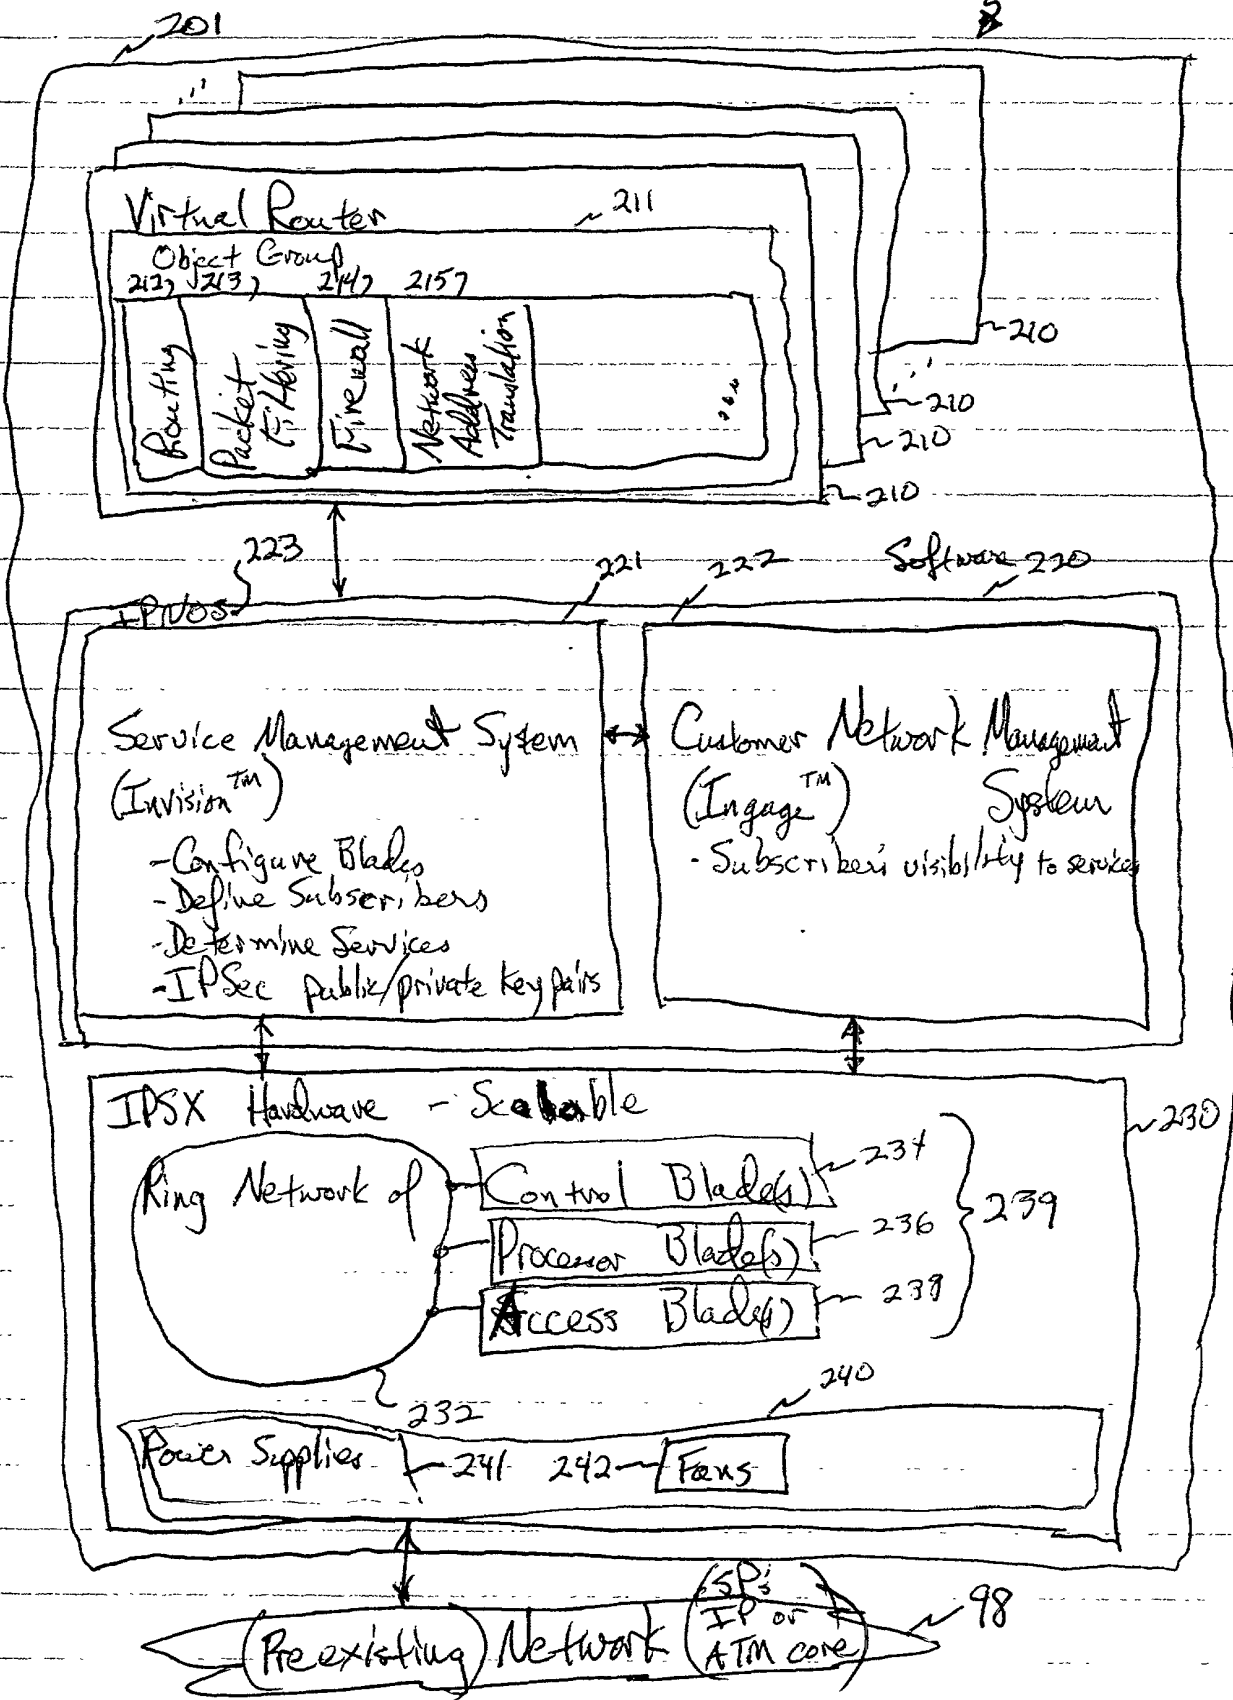 201
Virtual Router
211
Object Group
212 213 214 215
Routing
Packet
Filtering
Firewall
Network
Address
Translation
...
210
210
210
210
223
221
222
Software 220
IPNOS
Service Management System
(Invision™)
-Configure Blades
-Define Subscribers
-Determine Services
-IPSec public/private key pairs
Customer Network Management
(Ingage™) System
- Subscriber's visibility to services
IPSX Hardware - Scalable
230
Ring Network of
Control Blade(s)
234
Processor Blade(s)
236
Access Blade(s)
238
239
232
240
Power Supplies
241
242
Fans
(Preexisting) Network (SP's
IP or
ATM core)
98